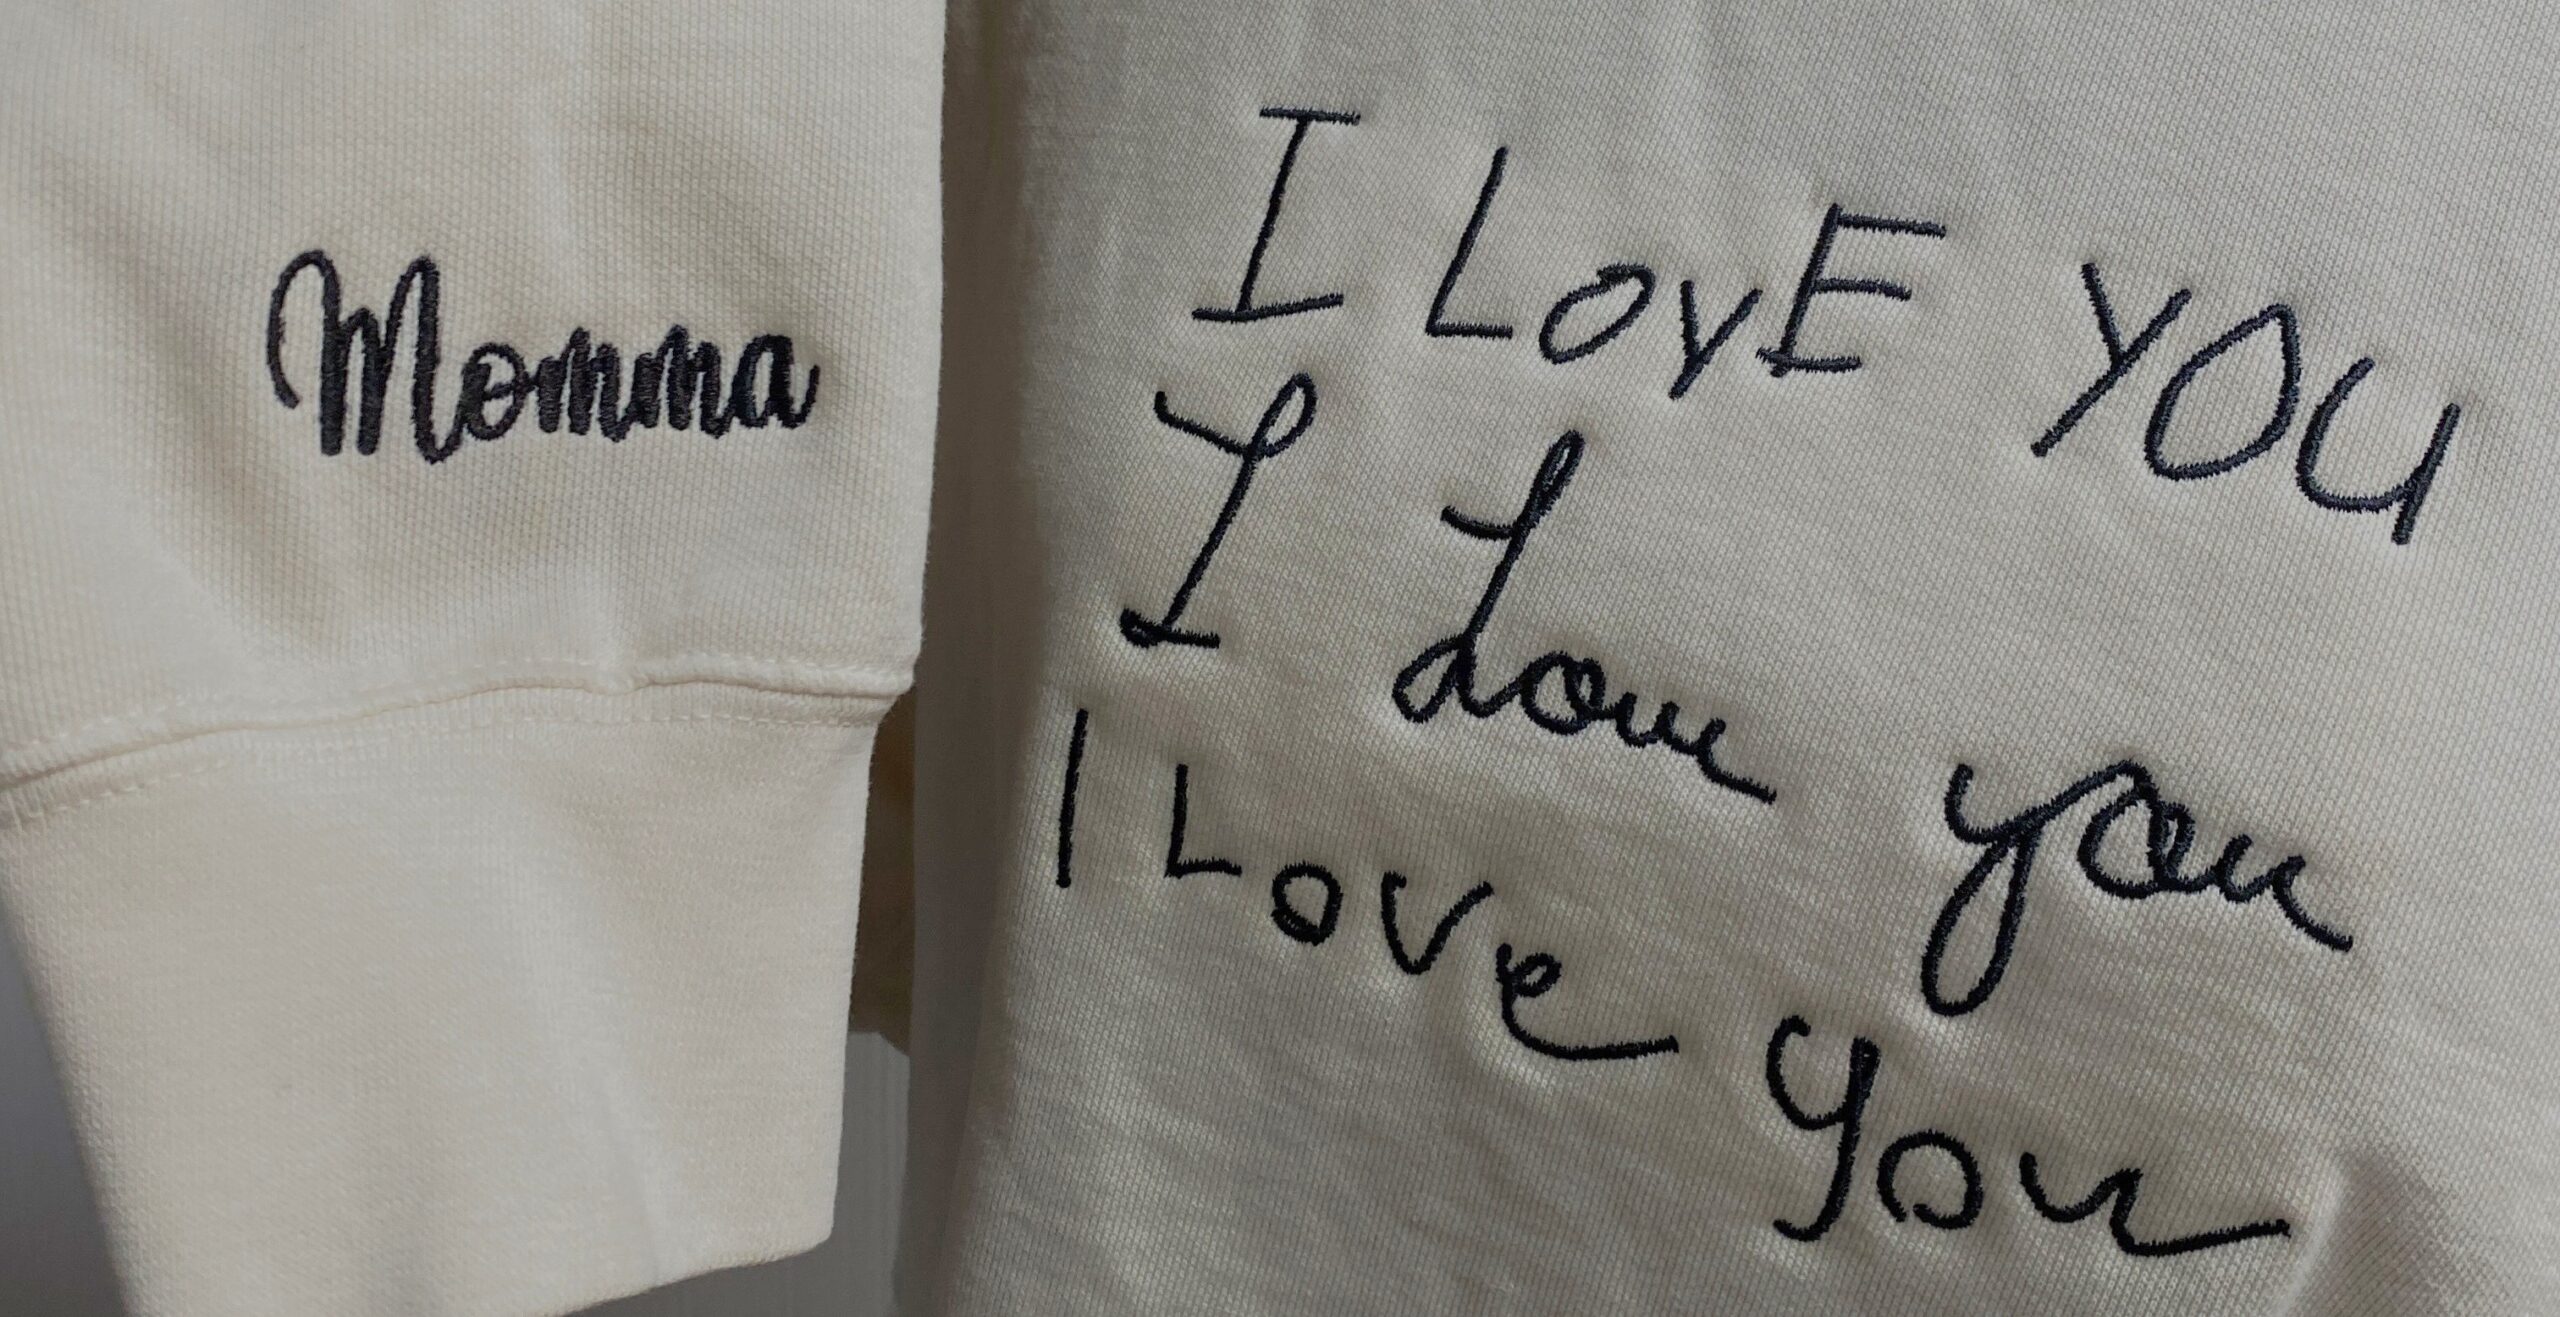 Momma
I LovE YOU
I Love you
I Love You